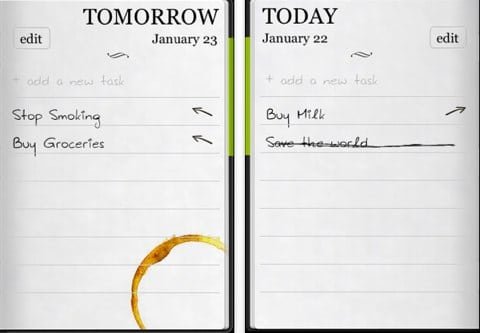 TOMORROW
edit
January 23
+ add a new task
Stop Smoking
Buy Groceries
TODAY
January 22
edit
+ add a new task
Buy Milk
Save the world